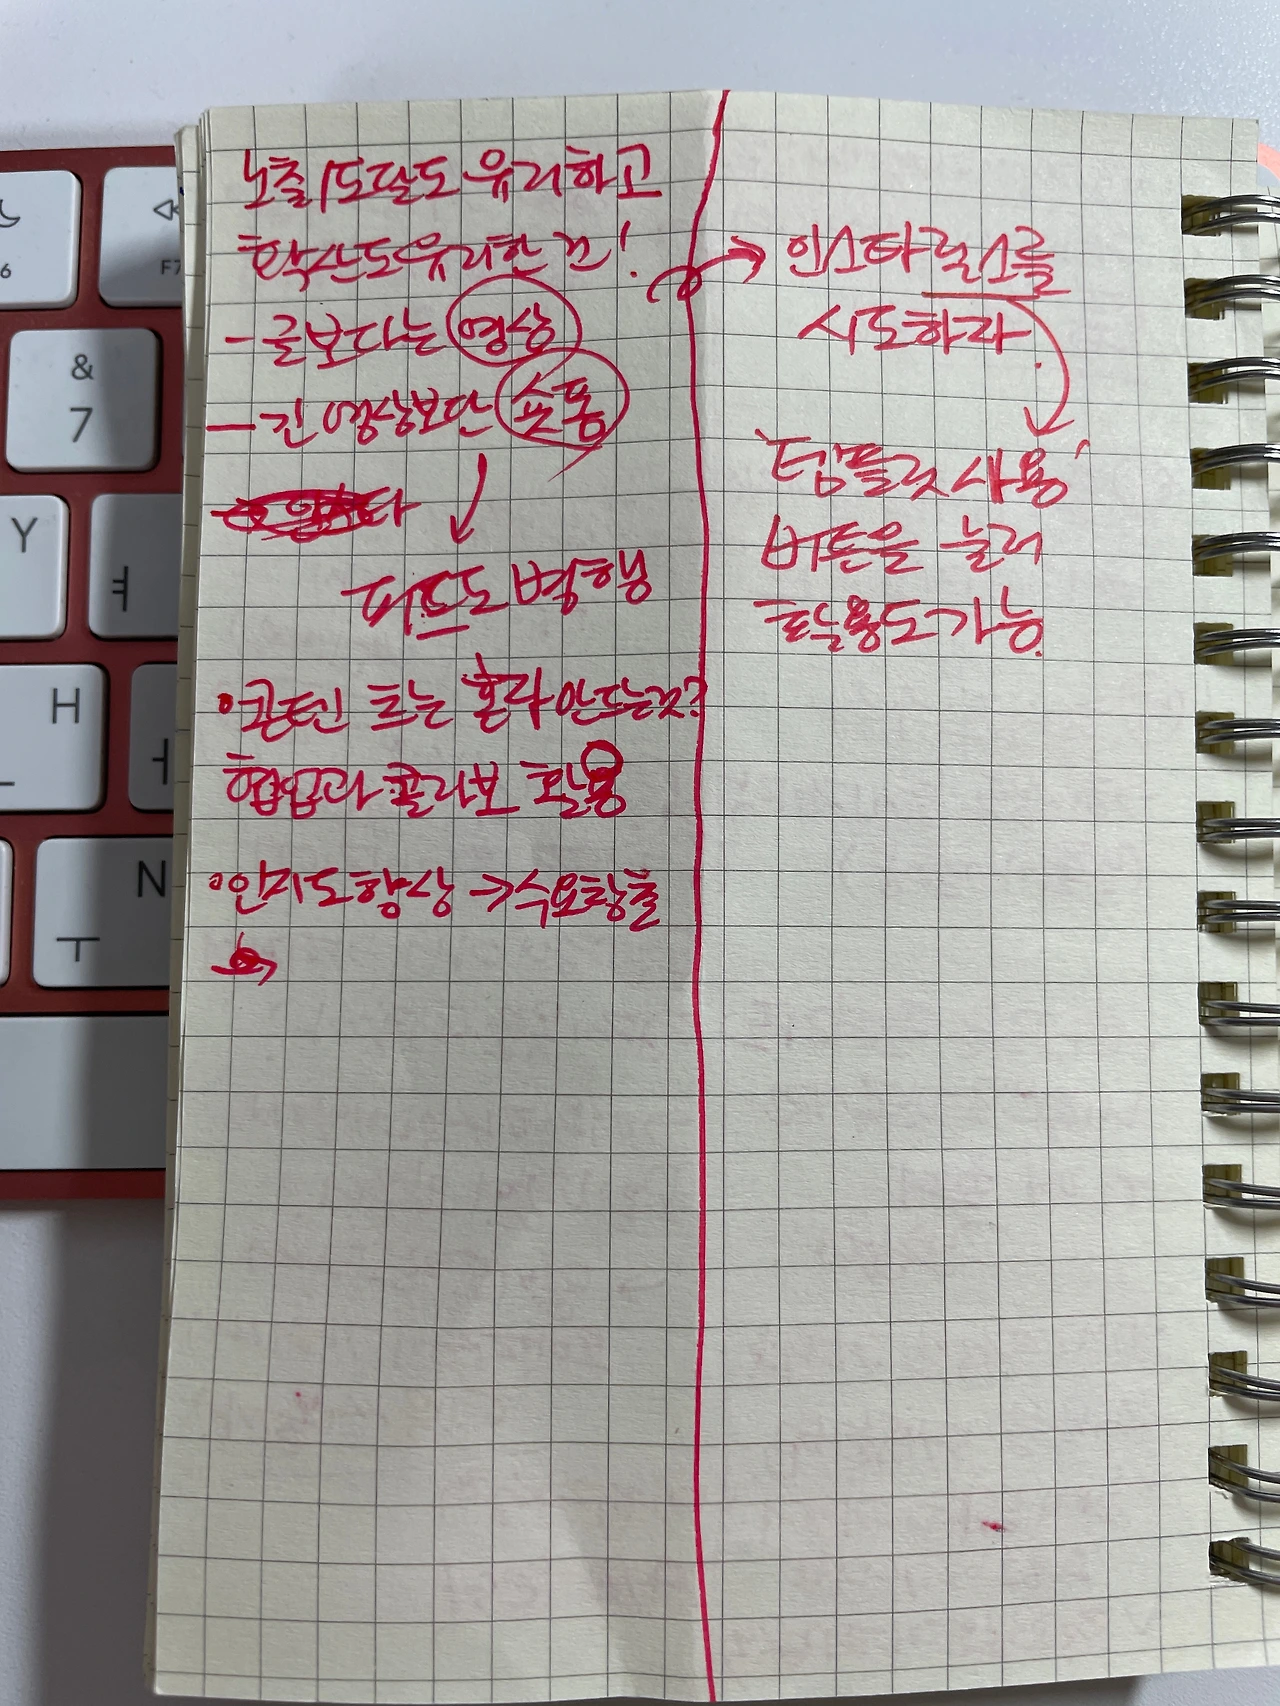 노출/도달도 유리하고
확산도 유리한 건!
- 글보다는 영상
- 긴 영상보단 숏폼
피드도 병행
• 콘텐츠는 혼자 만드는 것?
협업과 콜라보 활용
• 인지도 향상 → 수요창출
→ 인스타 릴스를
시도하라
'템플릿 사용'
버튼을 눌러
활용도 가능.
&
7
6
F7
Y
ㅕ
H
ㅓ
N
ㅜ